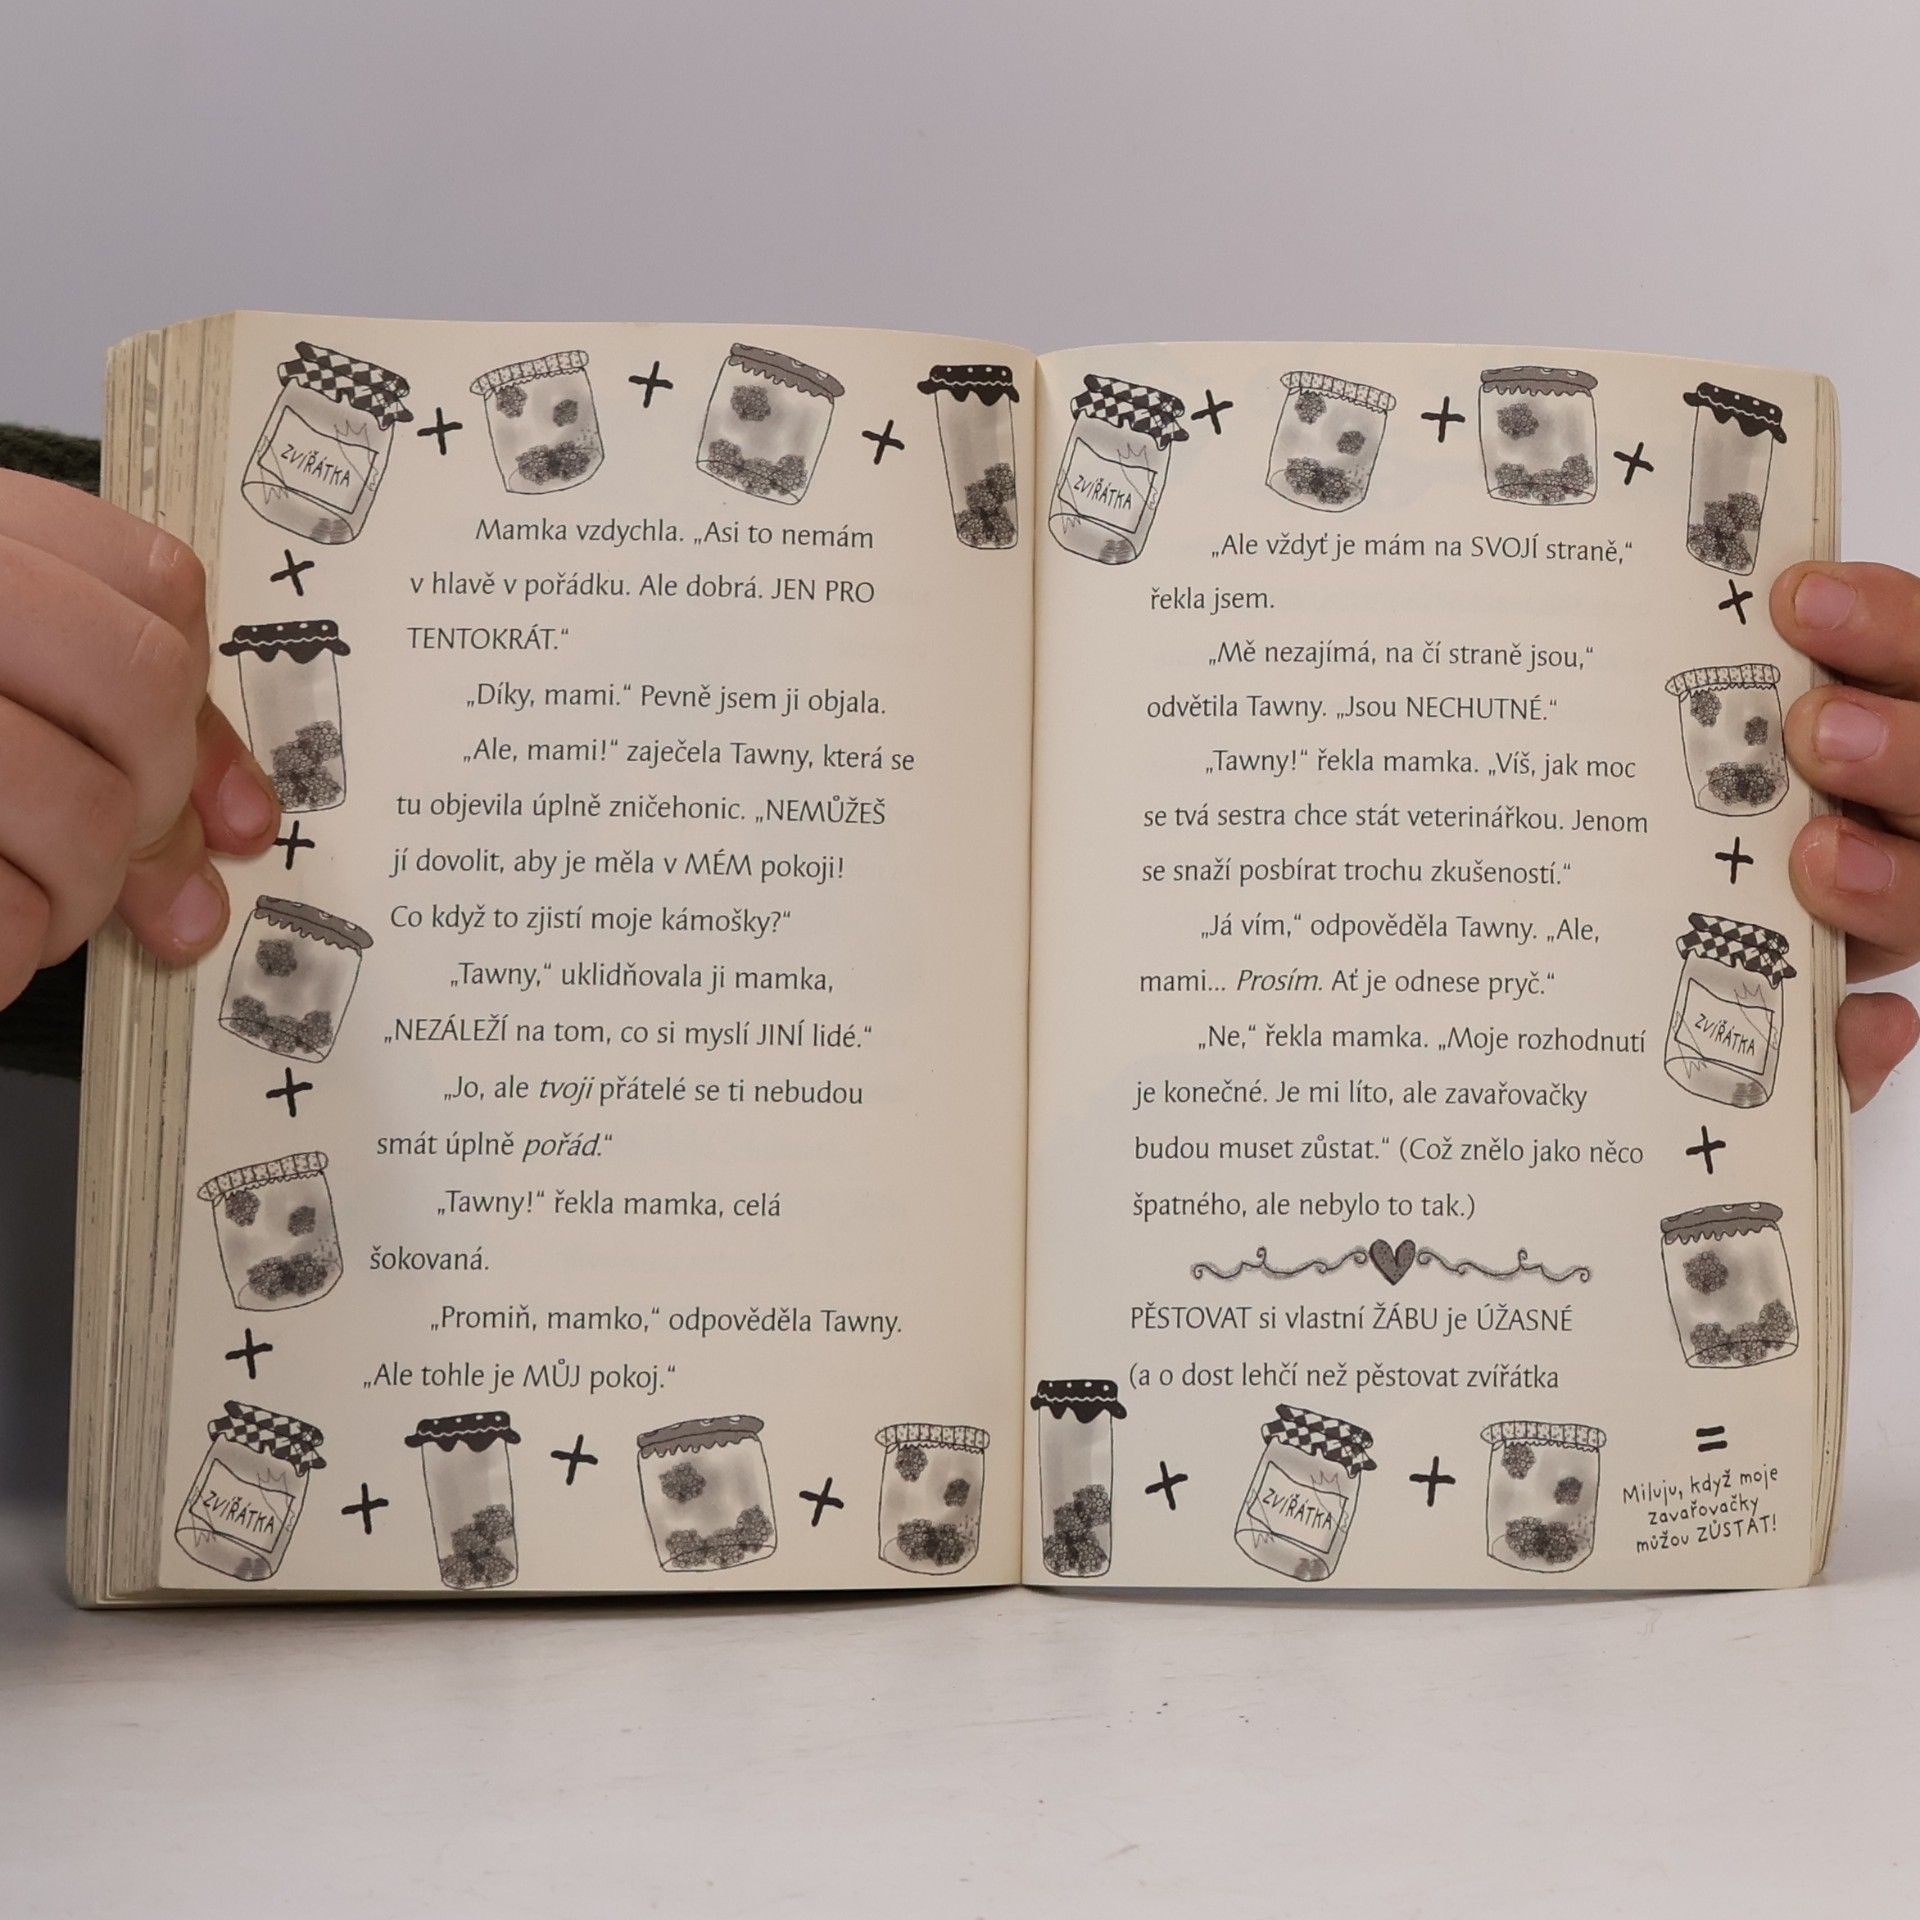 ZVÍŘÁTKA
Mamka vzdychla. „Asi to nemám
v hlavě v pořádku. Ale dobrá. JEN PRO
TENTOKRÁT.“
„Díky, mami.“ Pevně jsem ji objala.
„Ale, mami!“ zaječela Tawny, která se
tu objevila úplně zničehonic. „NEMŮŽEŠ
jí dovolit, aby je měla v MÉM pokoji!
Co když to zjistí moje kámošky?“
„Tawny,“ uklidňovala ji mamka,
„NEZÁLEŽÍ na tom, co si myslí JINÍ lidé.“
„Jo, ale tvoji přátelé se ti nebudou
smát úplně pořád.“
„Tawny!“ řekla mamka, celá
šokovaná.
„Promiň, mamko,“ odpověděla Tawny.
„Ale tohle je MŮJ pokoj.“
ZVÍŘÁTKA
ZVÍŘÁTKA
„Ale vždyť je mám na SVOJÍ straně,“
řekla jsem.
„Mě nezajímá, na čí straně jsou,“
odvětila Tawny. „Jsou NECHUTNÉ.“
„Tawny!“ řekla mamka. „Víš, jak moc
se tvá sestra chce stát veterinářkou. Jenom
se snaží posbírat trochu zkušeností.“
„Já vím,“ odpověděla Tawny. „Ale,
mami... Prosím. Ať je odnese pryč.“
„Ne,“ řekla mamka. „Moje rozhodnutí
je konečné. Je mi líto, ale zavařovačky
budou muset zůstat.“ (Což znělo jako něco
špatného, ale nebylo to tak.)
ZVÍŘÁTKA
PĚSTOVAT si vlastní ŽÁBU je ÚŽASNÉ
(a o dost lehčí než pěstovat zvířátka
ZVÍŘÁTKA
=
Miluju, když moje
zavařovačky
můžou ZŮSTAT!